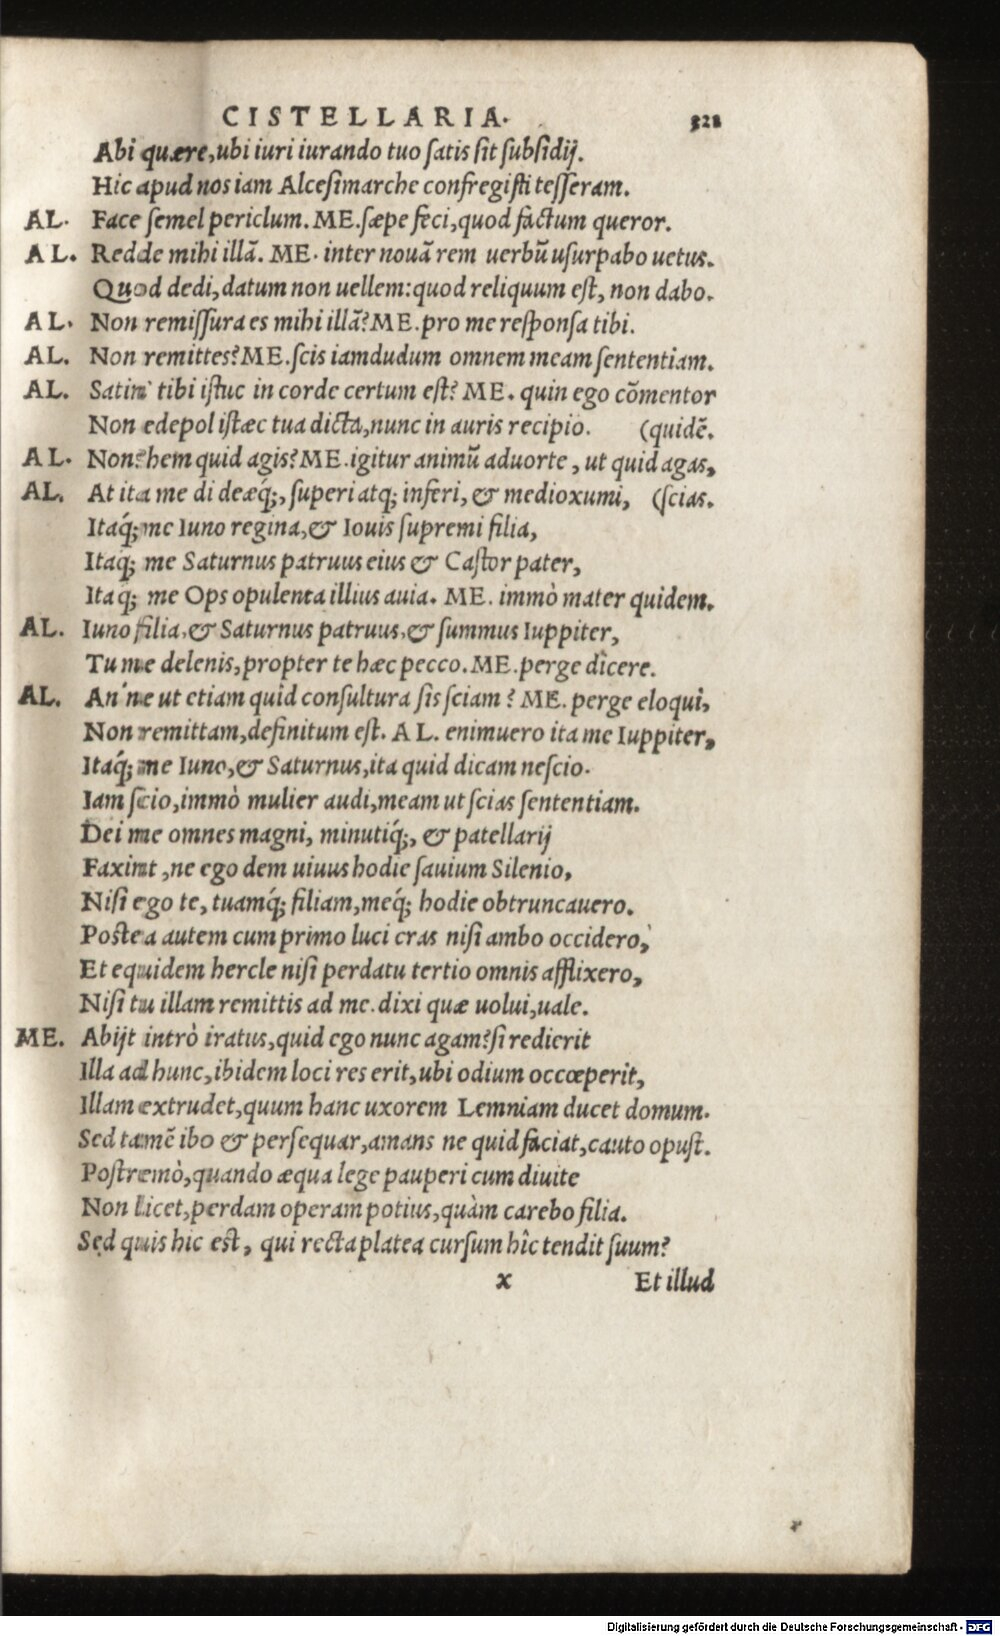 CISTELLARIA. 321
Abi quære,ubi iuri iurando tuo satis sit subsidij.
Hic apud nos iam Alcesimarche confregisti tesseram.
AL. Face semel periclum. ME.sæpe feci,quod factum queror.
AL. Redde mihi illã. ME. inter nouã rem uerbũ usurpabo uetus.
Quod dedi,datum non uellem:quod reliquum est, non dabo.
AL. Non remissura es mihi illã?ME.pro me responsa tibi.
AL. Non remittes?ME.scis iamdudum omnem meam sententiam.
AL. Satin' tibi istuc in corde certum est? ME. quin ego cõmentor
Non edepol istæc tua dicta,nunc in auris recipio. (quidẽ.
AL. Non?hem quid agis?ME.igitur animũ aduorte, ut quid agas,
AL. At ita me di deæq́;, superi atq; inferi, & medioxumi, (scias.
Itaq́; me Iuno regina,& Iouis supremi filia,
Itaq́; me Saturnus patruus eius & Castor pater,
Itaq́; me Ops opulenta illius auia. ME. immò mater quidem.
AL. Iuno filia,& Saturnus patruus,& summus Iuppiter,
Tu me delenis,propter te hæc pecco. ME.perge dicere.
AL. An'ne ut etiam quid consultura sis sciam? ME. perge eloqui,
Non remittam,definitum est. AL. enimuero ita me Iuppiter,
Itaq́; me Iuno,& Saturnus,ita quid dicam nescio.
Iam scio,immò mulier audi,meam ut scias sententiam.
Dei me omnes magni, minutiq́;, & patellarij
Faxint,ne ego dem uiuus hodie sauium Silenio,
Nisi ego te, tuamq́; filiam,meq́; hodie obtruncauero.
Postea autem cum primo luci cras nisi ambo occidero,
Et equidem hercle nisi perdatu tertio omnis afflixero,
Nisi tu illam remittis ad me.dixi quæ uolui,uale.
ME. Abijt intrò iratus,quid ego nunc agam?si redierit
Illa ad hunc,ibidem loci res erit,ubi odium occœperit,
Illam extrudet,quum hanc uxorem Lemniam ducet domum.
Sed tamẽ ibo & persequar,amans ne quid faciat,cauto opust.
Postremò,quando æqua lege pauperi cum diuite
Non licet,perdam operam potius,quàm carebo filia.
Sed quis hic est, qui recta platea cursum hîc tendit suum?
x Et illud
Digitalisierung gefördert durch die Deutsche Forschungsgemeinschaft - DFG